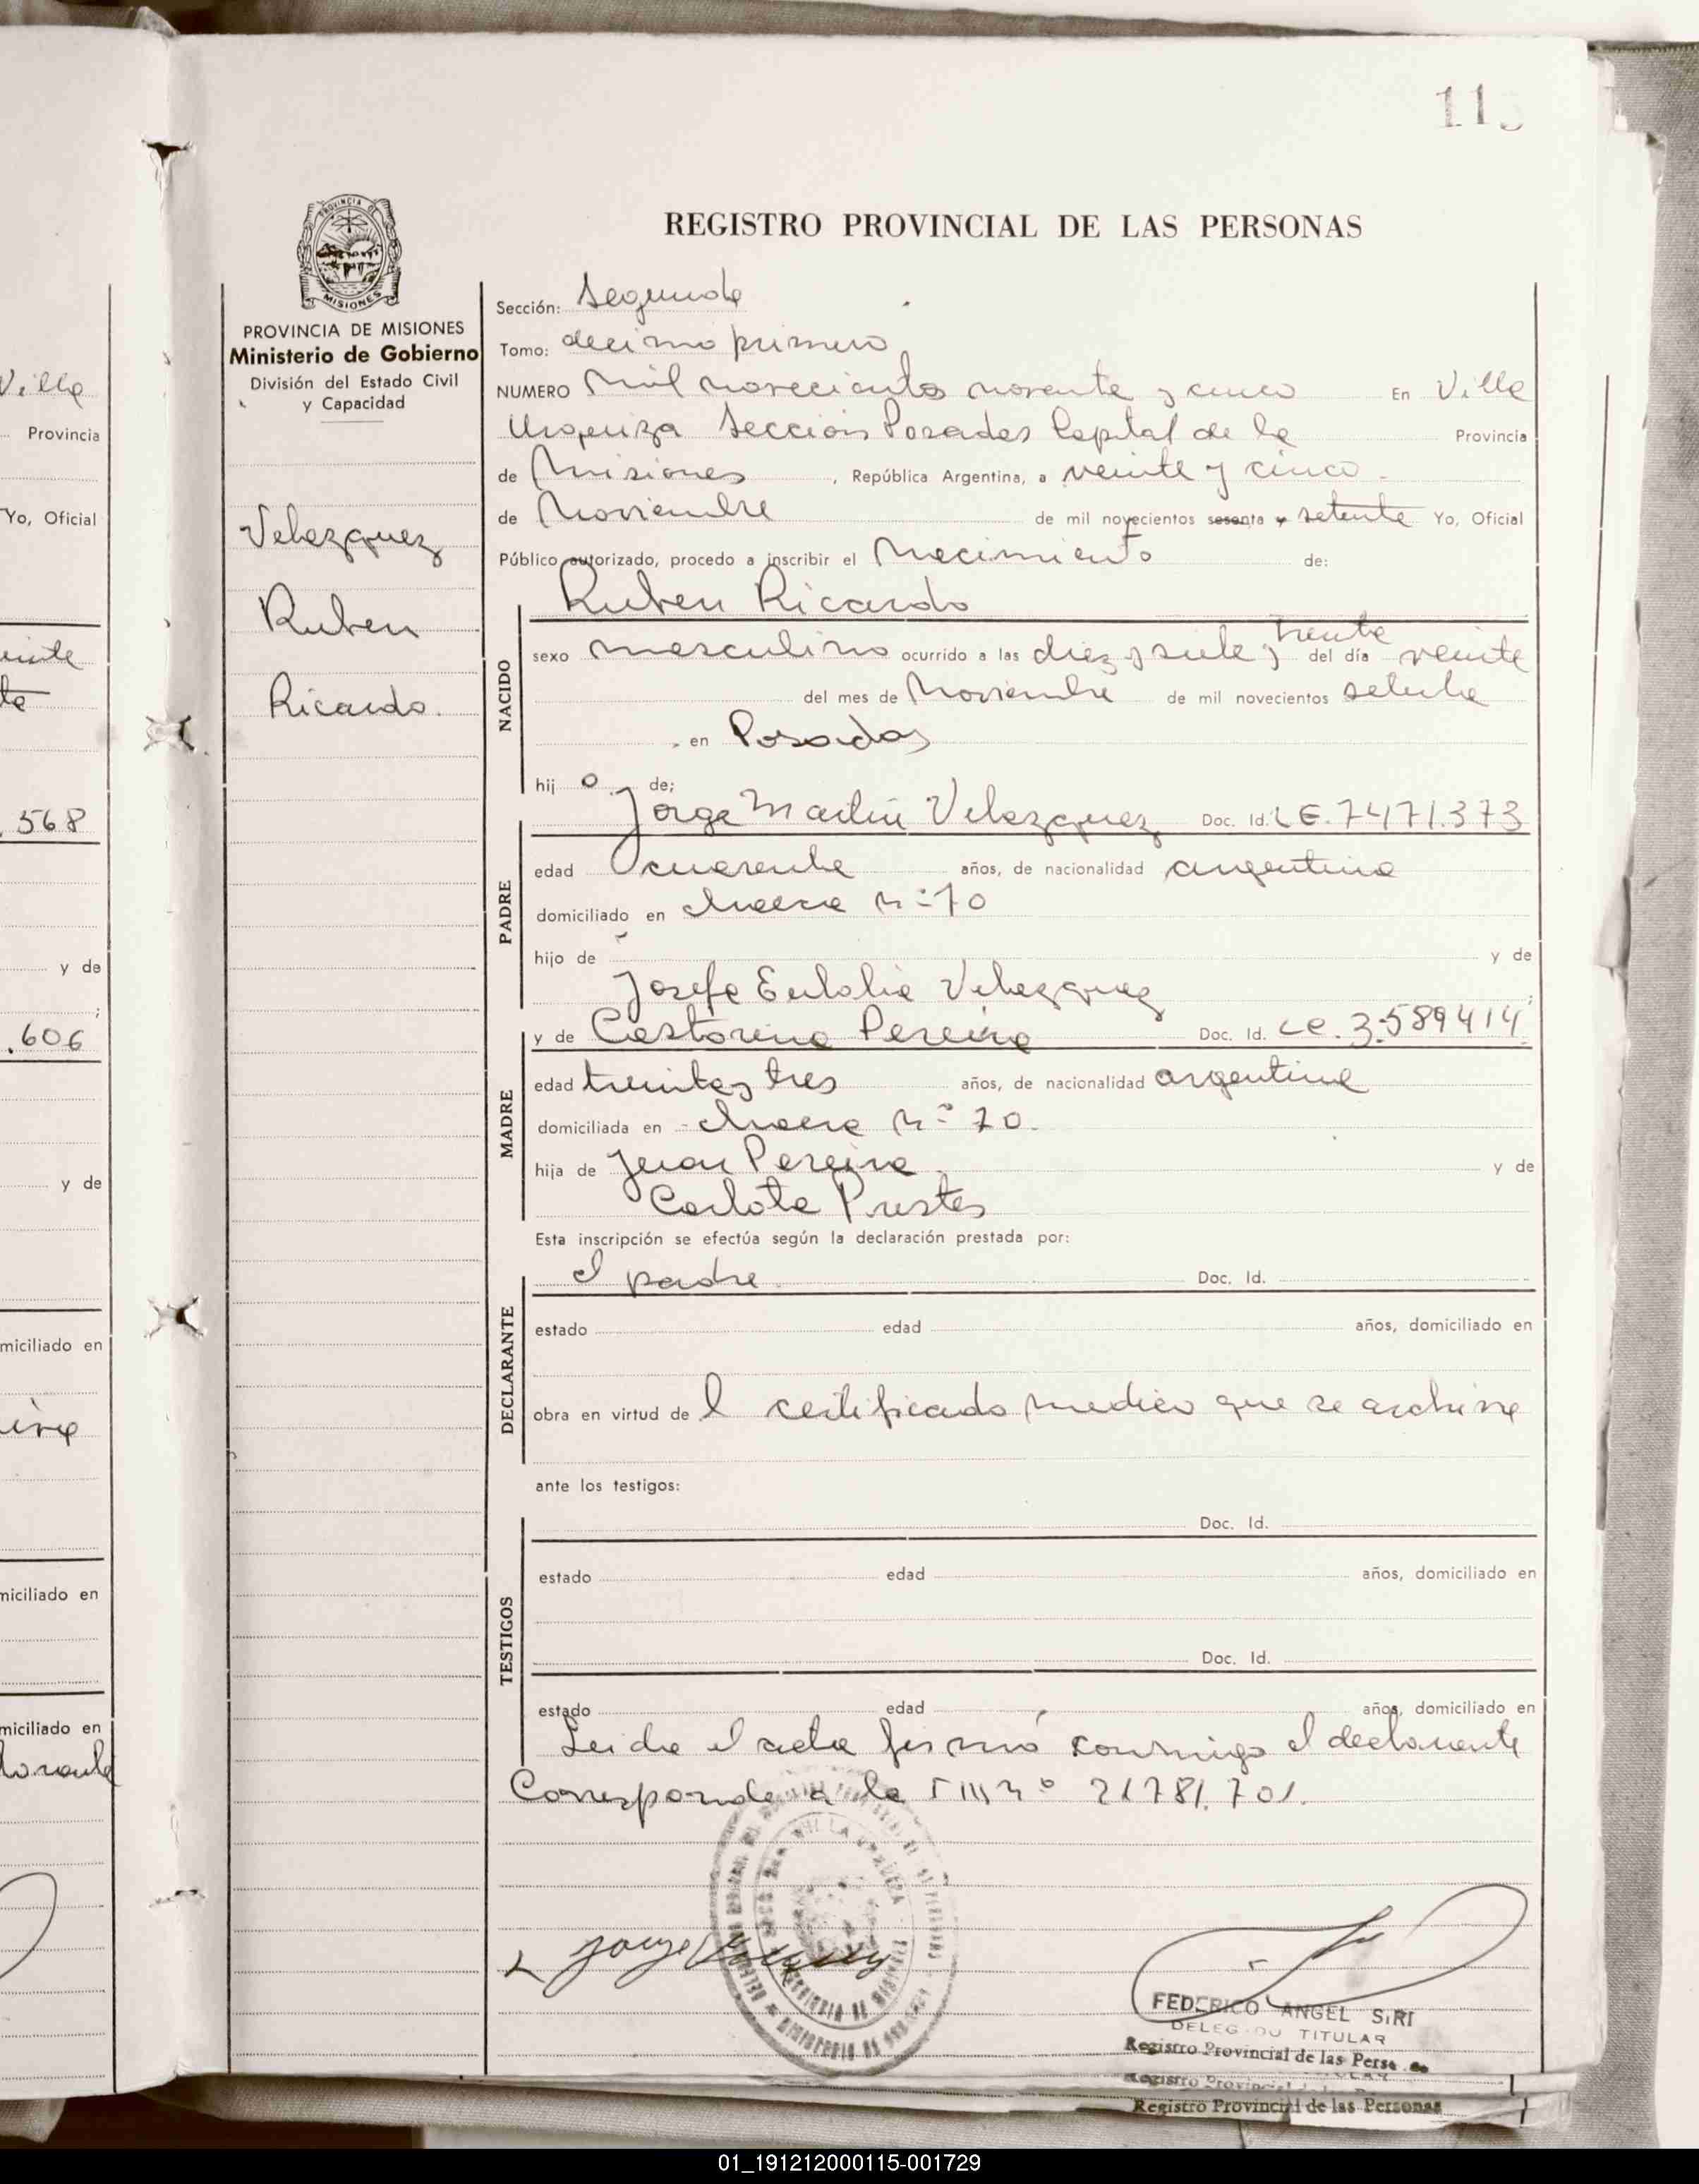 115
PROVINCIA DE
MISIONES
PROVINCIA DE MISIONES
Ministerio de Gobierno
División del Estado Civil
y Capacidad
Velazquez
Ruben
Ricardo.
REGISTRO PROVINCIAL DE LAS PERSONAS
Sección: Segunda
Tomo: decimo primero
NUMERO Mil novecientos noventa y cinco En Villa
Urquiza Sección Posadas Capital de la Provincia
de Misiones, República Argentina, a veinte y cinco
de Noviembre de mil novecientos sesenta y setenta Yo, Oficial
Público autorizado, procedo a inscribir el Nacimiento de:
Ruben Ricardo
NACIDO
sexo masculino ocurrido a las diez y siete y treinta del día veinte
del mes de Noviembre de mil novecientos setenta
en Posadas
hij o de;
Jorge Martin Velazquez Doc. Id. LE. 7471.373
PADRE
edad cuarenta años, de nacionalidad argentina
domiciliado en chacra nº 70
hijo de y de
Josefa Eulalia Velazquez;
y de Castorina Pereira Doc. Id. LC. 3.589414
MADRE
edad treinta y tres años, de nacionalidad argentina
domiciliada en - chacra nº 70.
hija de Juan Pereira y de
Carlota Prestes
Esta inscripción se efectúa según la declaración prestada por:
el padre. Doc. Id.
DECLARANTE
estado edad años, domiciliado en
obra en virtud de l certificado medico que se archiva
ante los testigos:
Doc. Id.
TESTIGOS
estado edad años, domiciliado en
Doc. Id.
estado edad años, domiciliado en
Leida el acta firmó conmigo el declarante
Corresponde a la nº 21781.701.
Jorge
FEDERICO ANGEL SIRI
DELEGADO TITULAR
Registro Provincial de las Personas
Registro Provincial de las Personas
Villa
Provincia
Yo, Oficial
568
y de
.606
y de
miciliado en
miciliado en
miciliado en
01_191212000115-001729